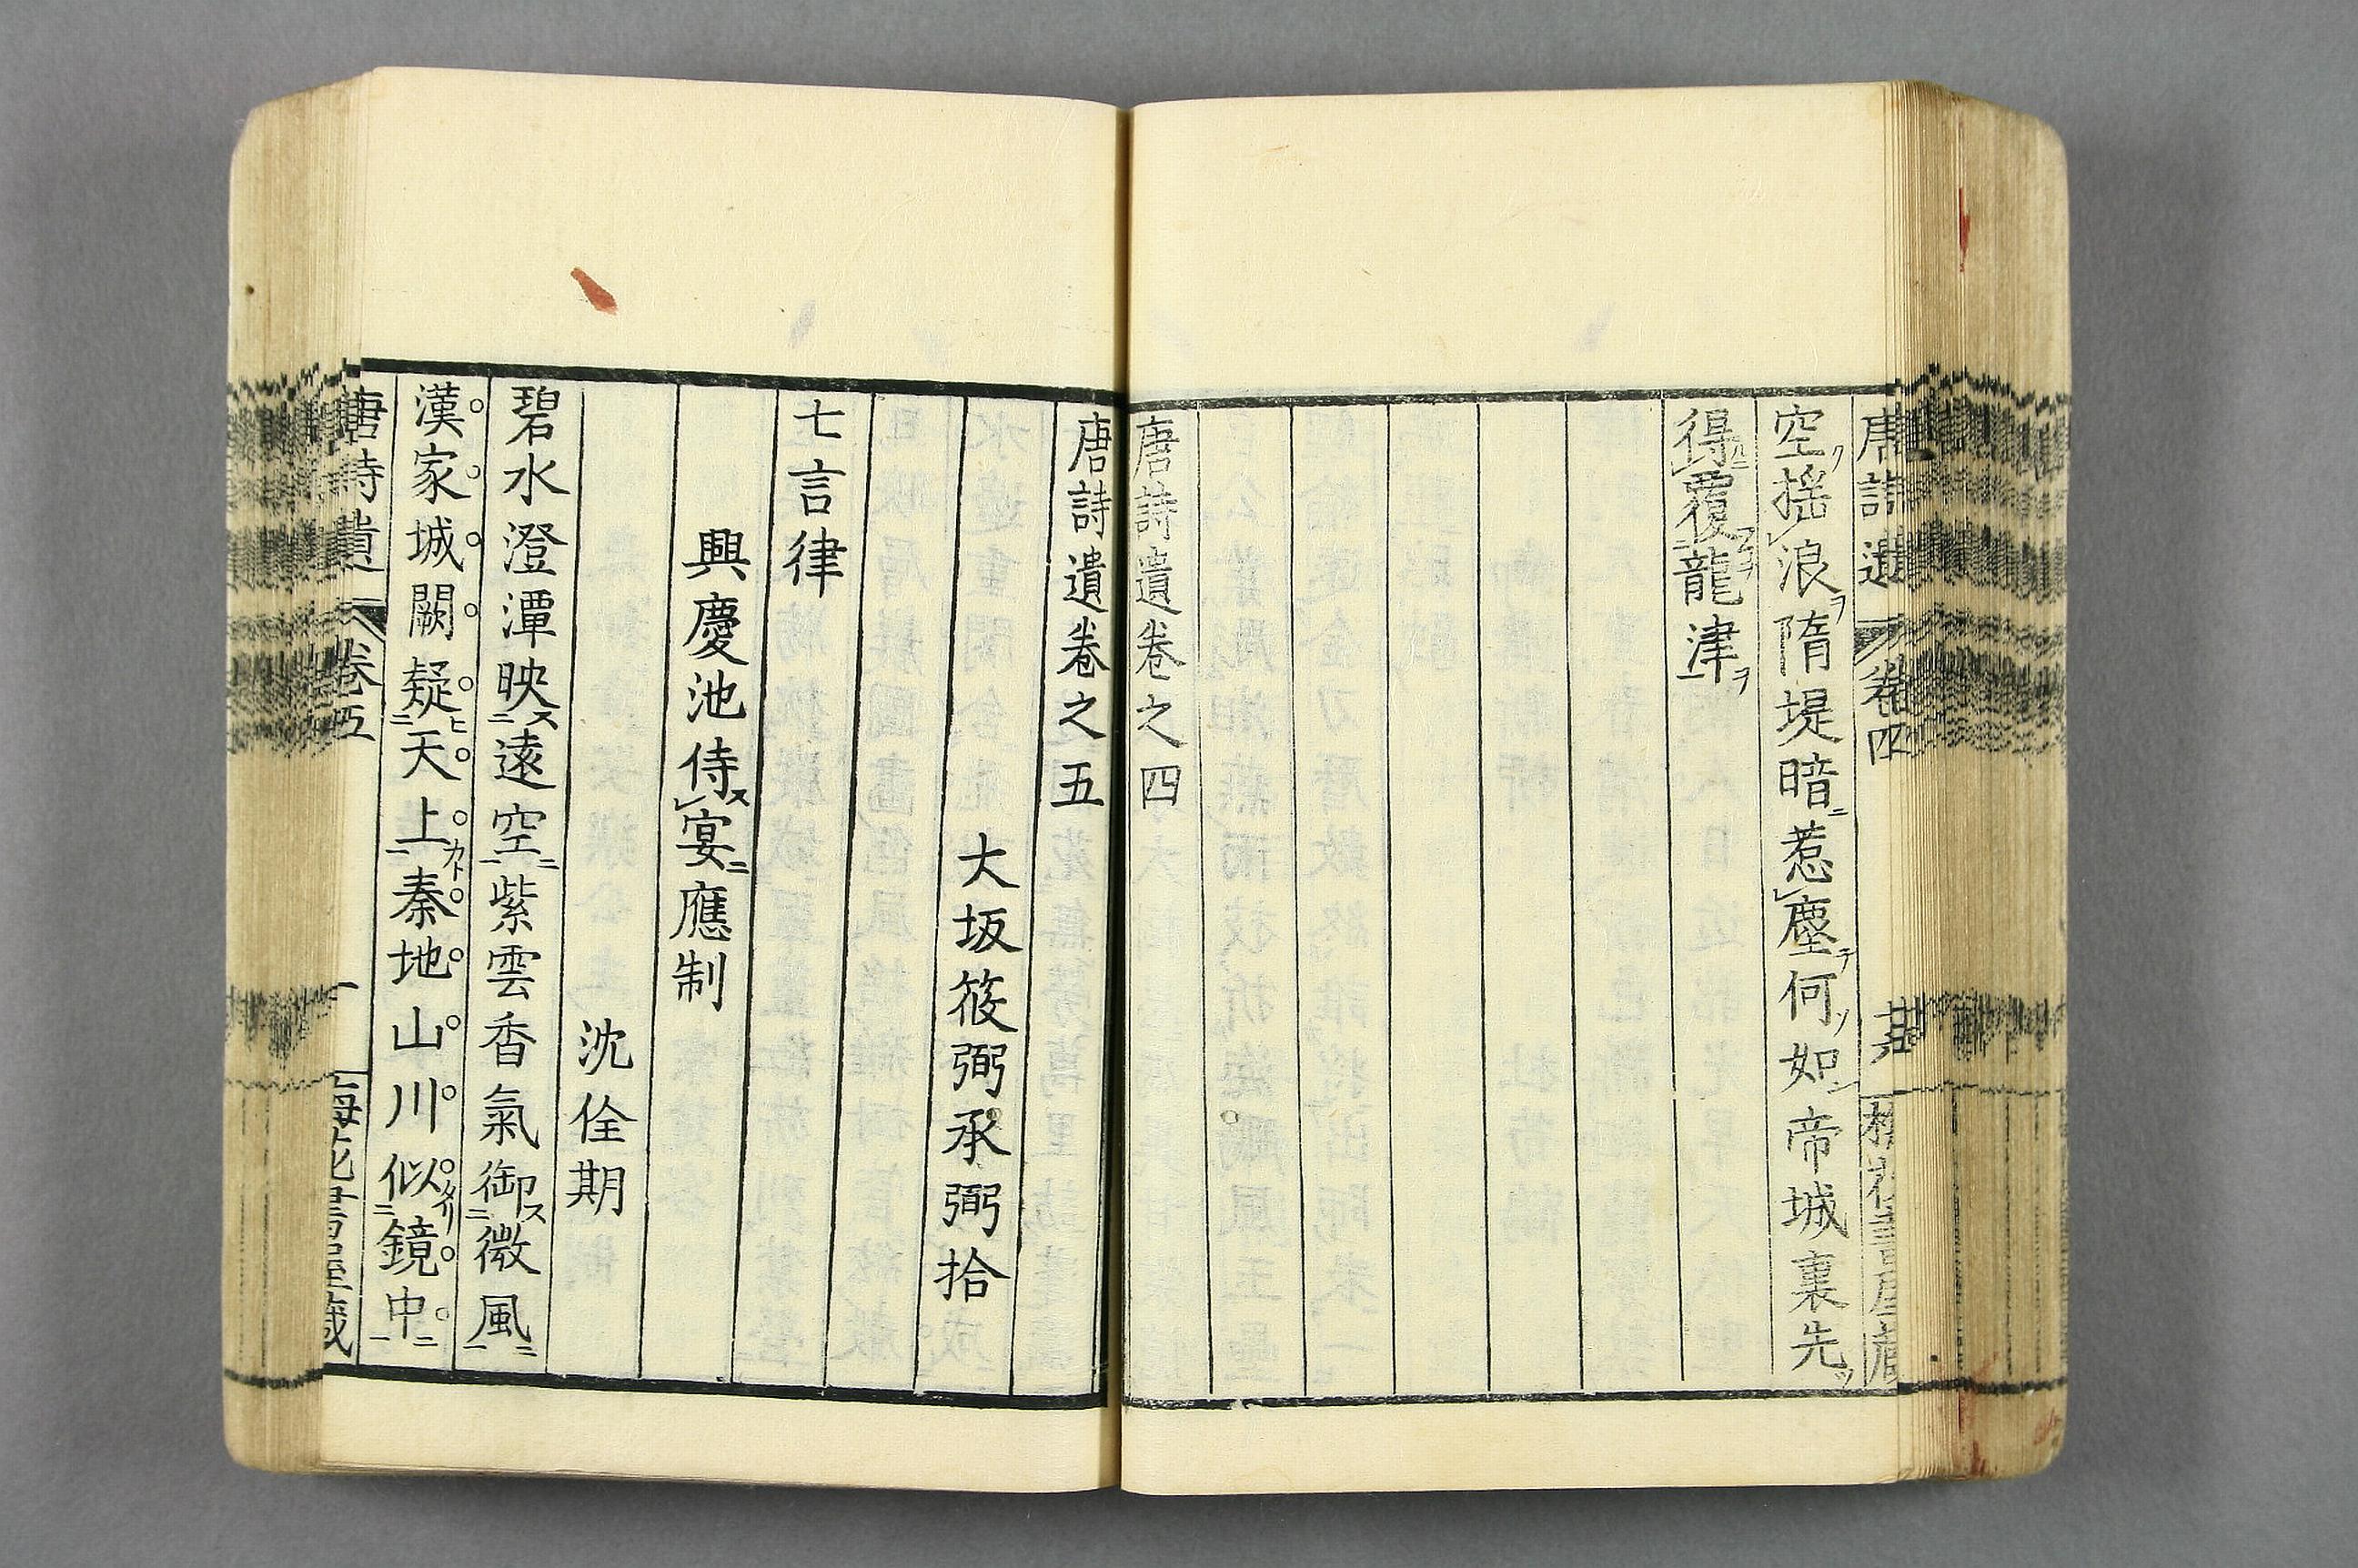 空揺浪隋堤暗惹塵何如帝城裏先
得覆龍津
唐詩遺巻之四
唐詩遺巻之五
大坂筱弼承弼拾
七言律
興慶池侍宴應制
沈佺期
碧水澄潭映遠空紫雲香氣御微風
漢家城闕疑天上秦地山川似鏡中
唐詩遺 巻五 一